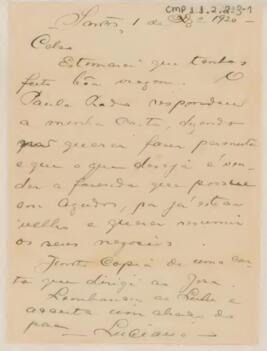 CMP 1.1.2.
Santos, 1 de 1920
Celso
Estimarei que tenhas
feito bôa viagem.
O
Paula respondeu
a minha carta, dizendo
não querer fazer permuta
e que o que deseja é ven-
der a fazenda que possue
em Agudos, por já estar
velho e querer resumir
os seus negocios.
Junto copia de uma car-
ta que dirigi ao
Lembranças ao e
acceita um abraço do
pae Luciano